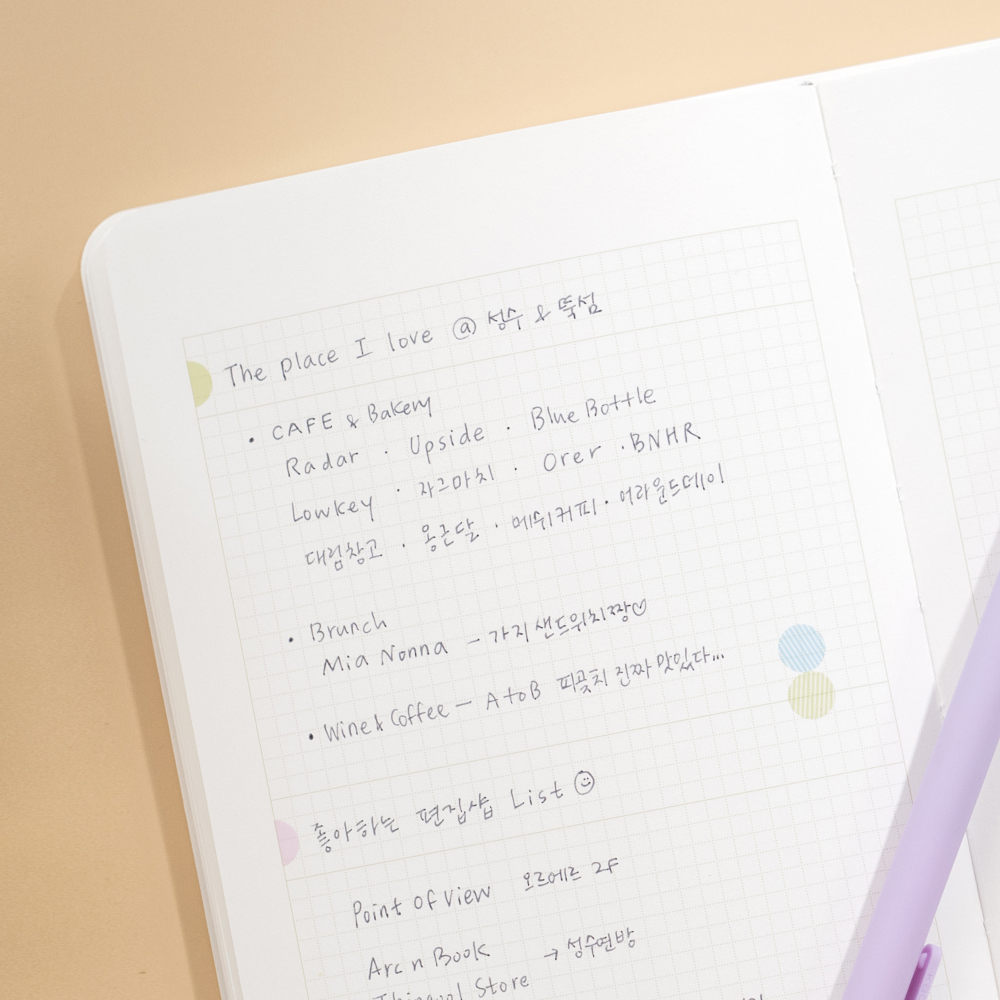 The place I love @ 성수 & 뚝섬
• CAFE & Bakery
Radar · Upside · Blue Bottle
Lowkey · 자그마치 · Orer · BNHR
대림창고 · 옹근달 · 메쉬커피 · 어라운드데이
• Brunch
Mia Nonna - 가지샌드위치짱♡
• Wine & Coffee - A to B 피곷치 진짜 맛있다...
좋아하는 편집샵 List ☺
Point of View 오르에르 2F
Arc n Book → 성수연방
Store